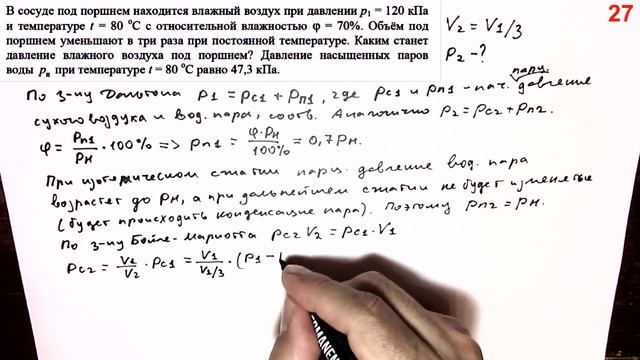 В сосуде под поршнем находится влажный воздух при давлении p₁ = 120 кПа
и температуре t = 80 °C с относительной влажностью φ = 70%. Объём под
поршнем уменьшают в три раза при постоянной температуре. Каким станет
давление влажного воздуха под поршнем? Давление насыщенных паров
воды pн при температуре t = 80 °C равно 47,3 кПа.
V₂ = V₁/3
P₂ - ?
27
парц.
По з-ну Дальтона P₁ = Pс1 + Pп1, где Pс1 и Pп1 - пач. давление
сухого воздуха и вод. пара, соотв. Аналогично P₂ = Pс2 + Pп2.
φ = Pп1/Pн · 100% => Pп1 = φ·Pн/100% = 0,7Pн.
При изотермическом сжатии парц. давление вод. пара
возрастет до Pн, а при дальнейшем сжатии не будет изменяться
(будет происходить конденсация пара). Поэтому Pп2 = Pн.
По з-ну Бойля-Мариотта Pс2 V₂ = Pс1 · V₁
Pс2 = V₁/V₂ · Pс1 = V₁/V₁/3 · (P₁ -
PERMANEN